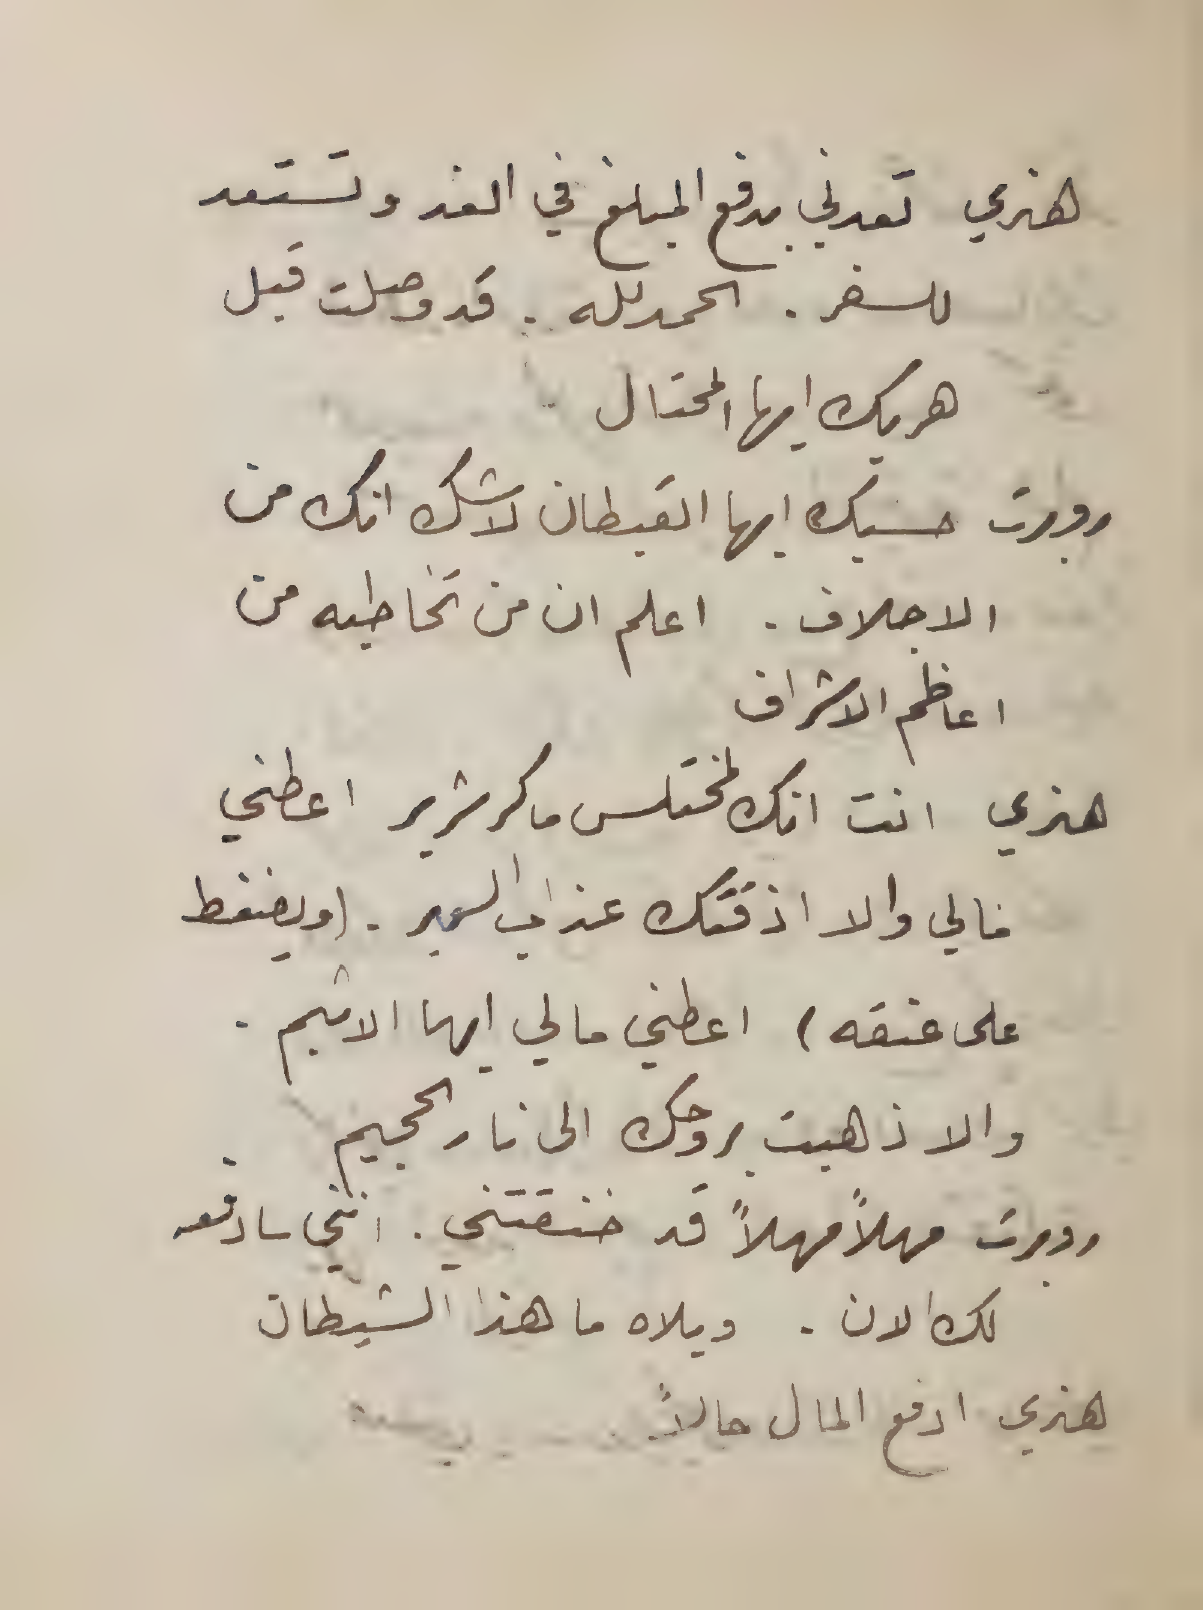 هنري تعدني بدفع المبلغ في الغد وتستعد
للسفر . الحمدلله . قد وصلت قبل
هربك ايها المحتال
روبرت حسبك ايها القبطان لاشك انك من
الاجلاف . اعلم ان من تخاطبه من
اعاظم الاشراف
هنري انت انك لمختلس ماكر شرير اعطني
مالي والا اذقتك عذاب السعير . (ويضغط
على عنقه) اعطني مالي ايها الاثيم .
والا ذهبت بروحك الى نار الجحيم .
روبرت مهلاً مهلاً قد خنقتني . انني سادفعه
لك الان . ويلاه ما هذا الشيطان
هنري ادفع المال حالاً